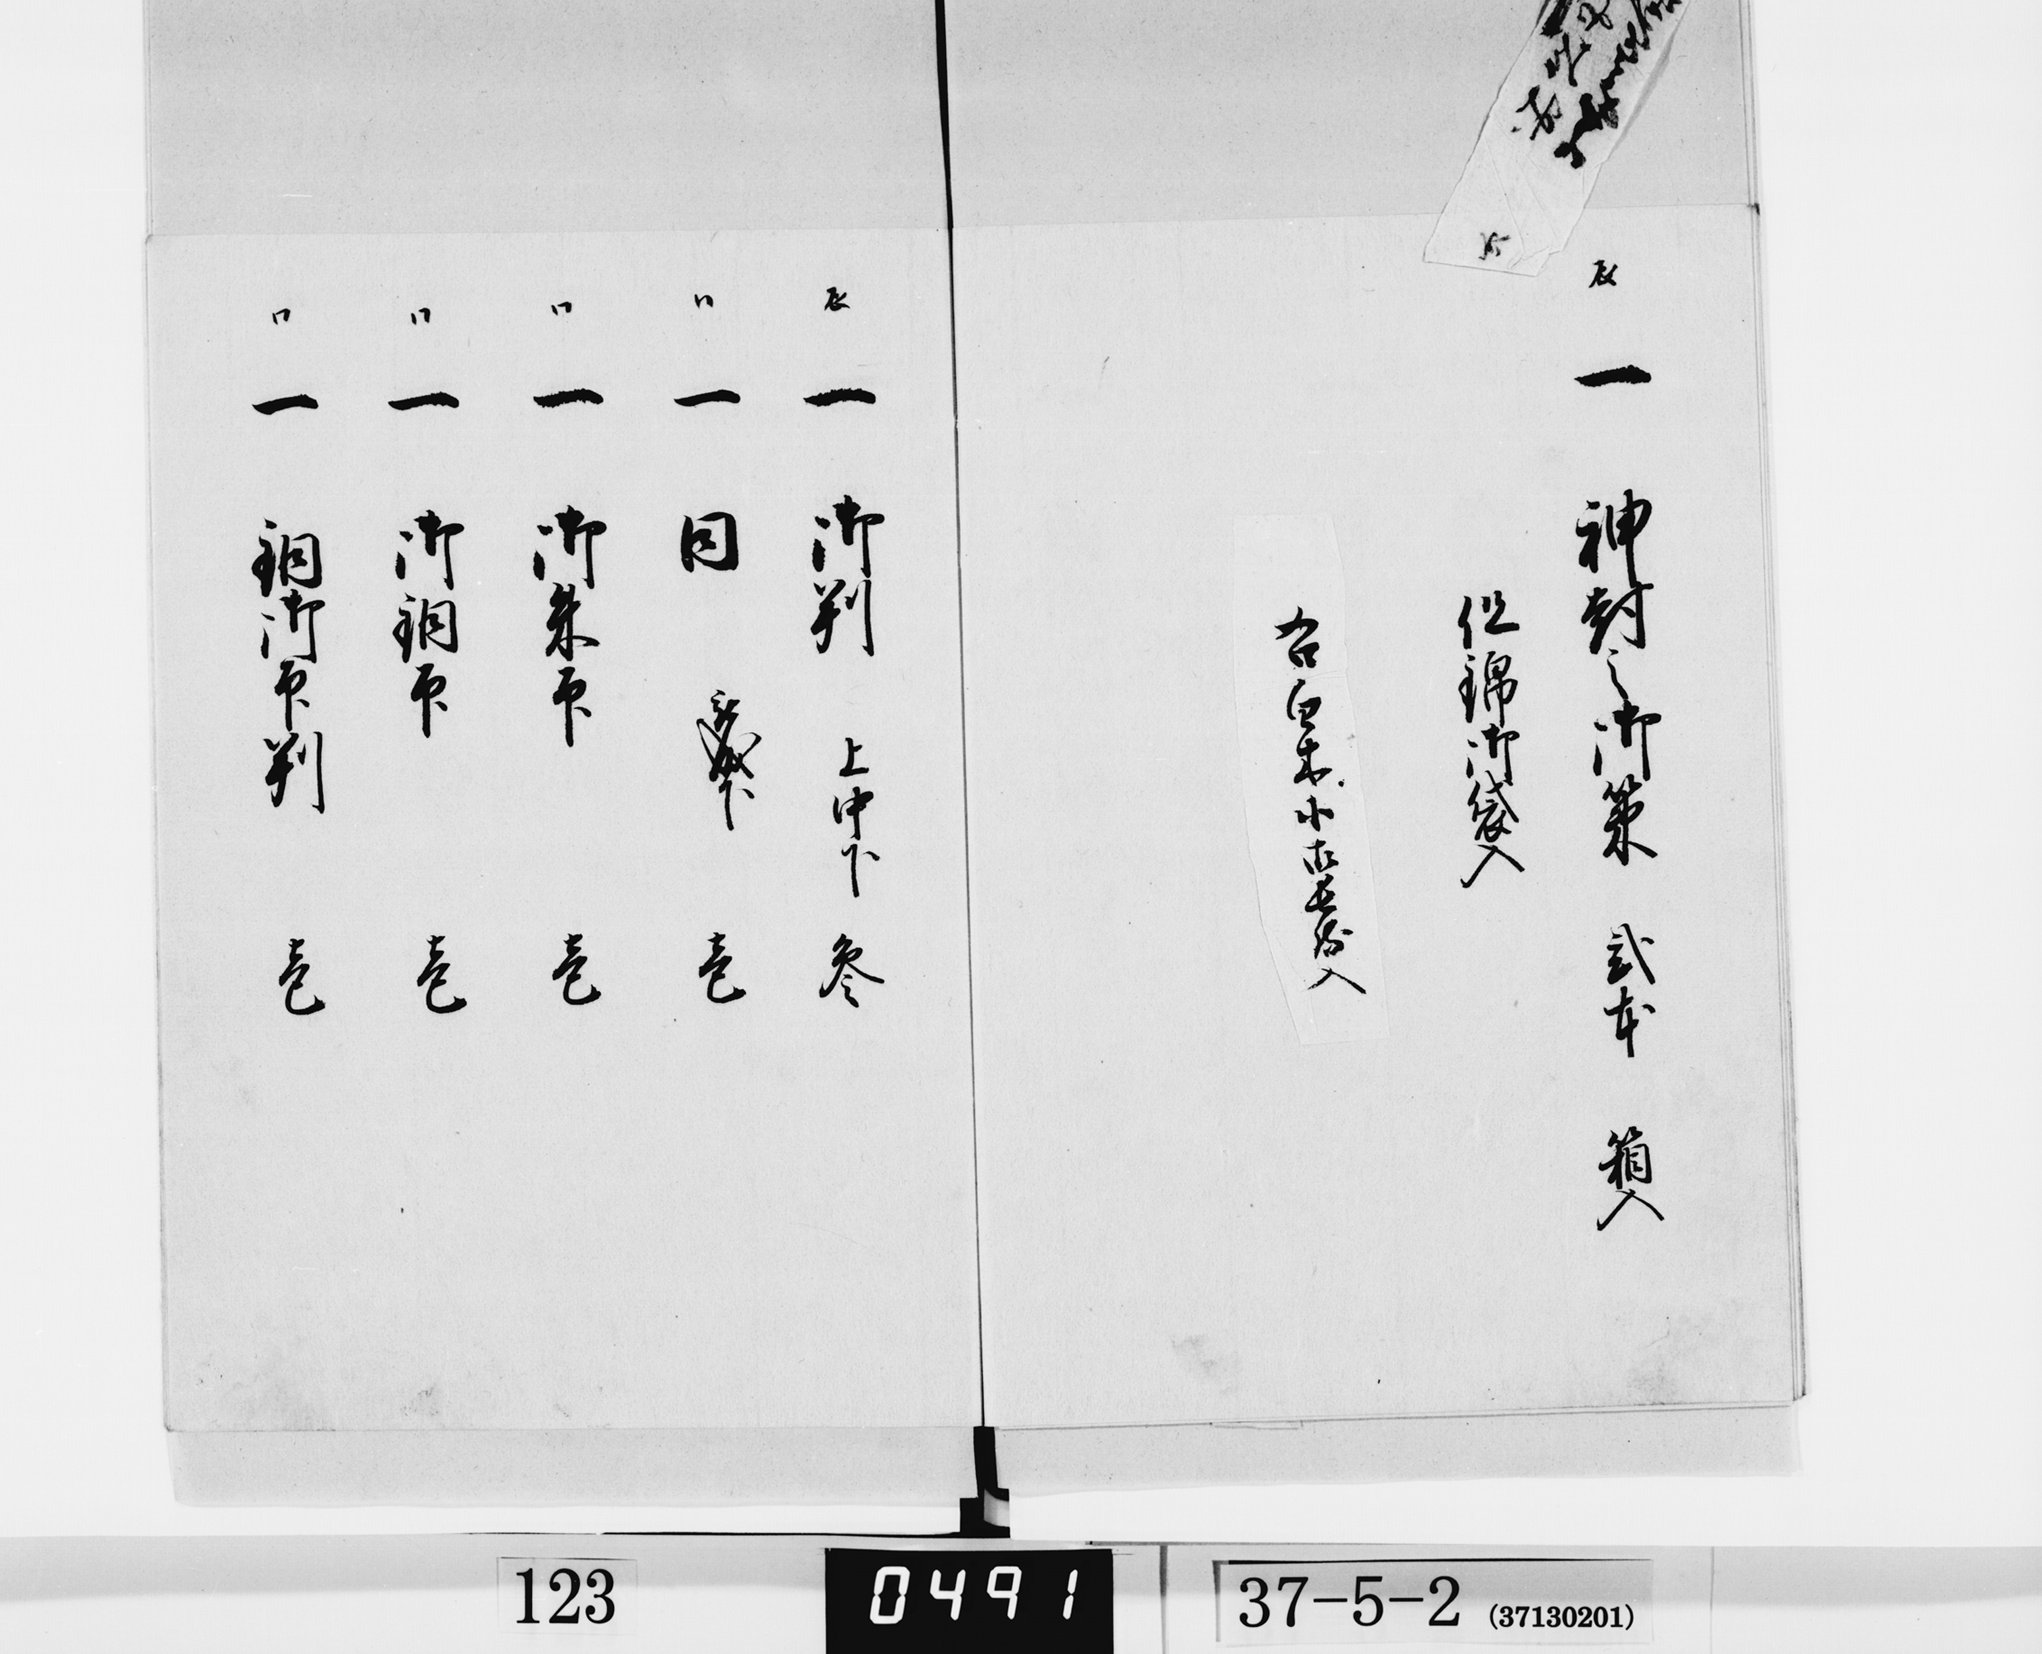 辰
一 神封之御策 弐本 箱入
但錦御袋入
右白木小サ長箱入
辰 一 御判 上中下 参
〃 一 同 壱
〃 一 御朱印 壱
〃 一 御銅印 壱
〃 一 銅御印判 壱
123
0491
37-5-2 (37130201)